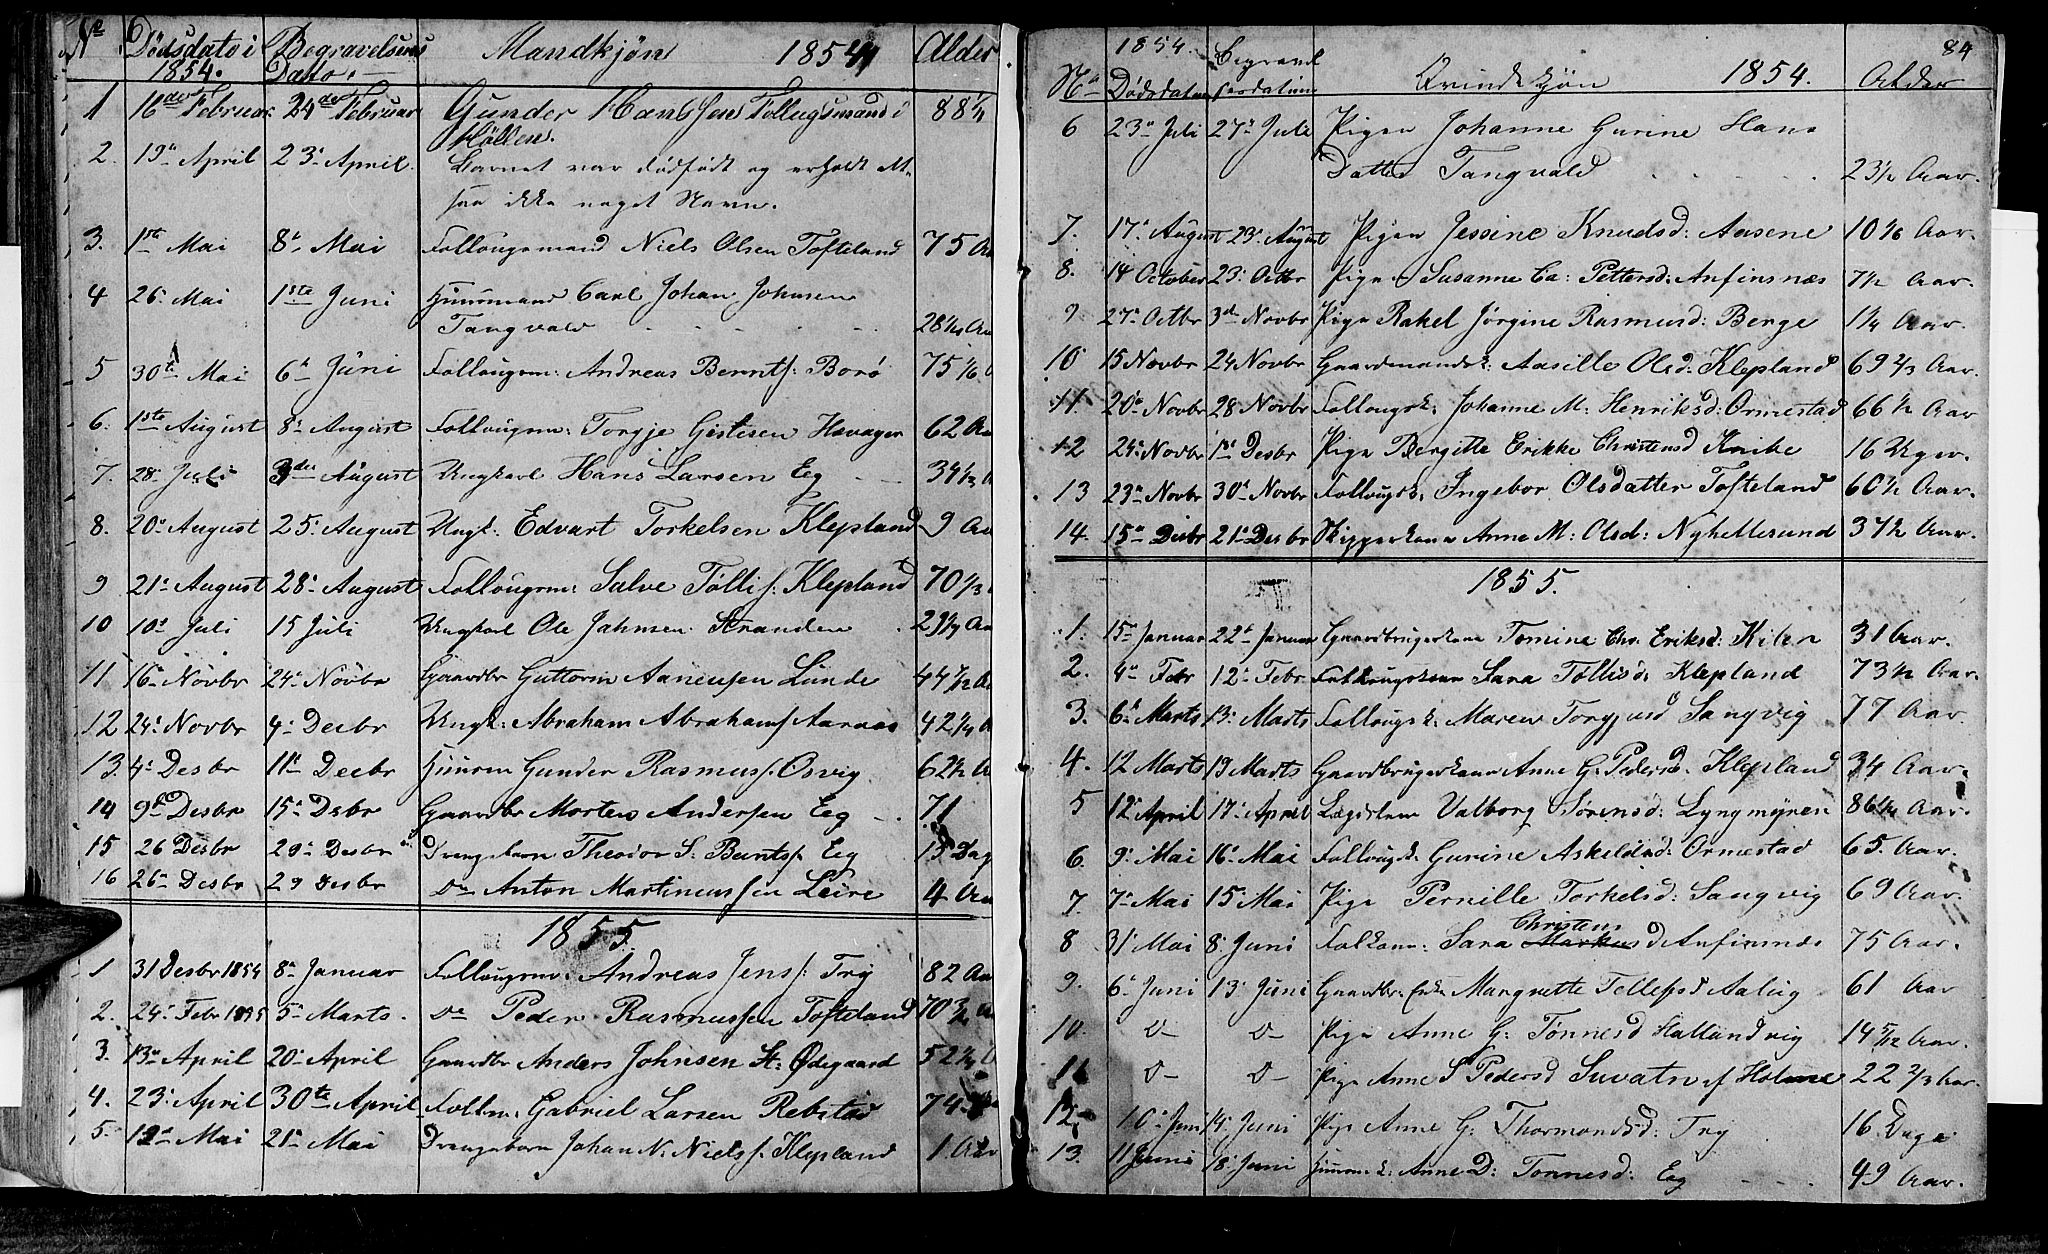 No Dødsdato i 1854. Begravelsens Datto. Mandkjøn 1854 Alder
1 16de Februar 24de Februar Gunder Hanssen Follugsmand i
Høllen. 88 1/4
2. 19de April 23. April. Barnet var dødfødt og erholdt alt-
saa ikke noget Navn.
3. 1ste Mai 8de Mai Follougsmand Niels Olsen Tofteland 75 Aa
4 26. Mai 1ste Juni Huusmand Carl Johan Johnsen
Tangvald 28
5 30te Mai 6te Juni Follougsm: Andreas Berntss: Borø 75 1/6
6. 1ste August 8de August Follougsm: Torgje Hævager 62 Aa
7. 28. Juli 3die August Ungkarl Hans Larsen Eeg 34 1/3
8. 20. August 25. August Ungk: Edvart Torkelsen Klepland 9 Aa
9 21. August 28. August Follougsm: Salve Tollis f. Klepland 70 1/3
10 10de Juli 15 Juli Ungkarl Ole Jahnsen Stranden
11 16. Novbr 24. Novbr Gaardbr Guttorm Aanensen Lunde 44 7/12 Aa
12 24. Novbr 4. Desbr Ungk: Abraham Abrahams f Aaraas 42 1/4
13. 4. Desbr 11te Decbr Huusm Gunder Rasmus f. Osvig 62 1/2 A
14 9de Desbr 15. Dsbr Gaardbr Morten Andersen Eeg 71
15 26 Desbr 29. Desbr Drengebarn Theodor S. Bernts f. Eeg 13 Dag
16 26. Desbr 29 Desbr Do Anton Martinussen Leire 4 Aa
1855.
1 31 Desbr 1854 8de Januar Follougsm. Andreas Jens f. Try 82 Aa
2. 24. Febr 1855 5te Marts. Do Peder Rasmussen Tofteland 70 3/4
3. 13de April 20. April Gaardbr Anders Johnsen St: Ødegaard 52
4. 23. April 30te April Follm: Gabriel Larsen Rebstad 74
5. 12. Mai 21. Mai Drengebarn Johan N. Niels f. Klepland 1 Aar
84
No 1854 Dødsdatum Begravelsesdatum Qvindekjøn 1854. Alder
6 23de Juli 27de Juli Pigen Johanne Gurine Hans
Datter Tangvald 23 1/2 Aar.
7. 17. August 23. August Pigen Jessine Knudsd: Aasene 10 1/6 Aar.
8. 14 October 23. Octbr Pige Susanne Ca: Pettersd: Anfinsnæs 7 1/2 Aar.
9 27. Octbr 3die Novbr Pige Rakel Jørgine Rasmusd: Berge 1 1/4 Aar.
10 15 Novbr 24 Novbr Gaardmandsk: Aasille Olsd: Klepland 69 2/3 Aar.
11. 20de Novbr 28 Novbr Follougsk. Johanne M: Henriksd: Ormestad 66 1/2 Aar
12 24. Novbr 1ste Desbr Pige Bergitte Erikke Christensd Knibe 16 Uger.
13 23. Novbr 30te Novbr Follougsk. Ingebor Olsdatter Tofteland 60 1/2 Aar.
14. 15de Desbr 21. Desbr Skipperkone Anne M: Olsd: Nyhellesund 37 1/2 Aar.
1855.
1. 15de Januar 22. Januar Gaardbrugerkone Tomine Chr. Eriksd: Kilen 31 Aar.
2. 4de Febr 12. Febr Follougskone Sara Tollisd. Klepland 73 1/2 Aar.
3. 6te Marts 13. Marts Follougsk. Maren Torgjusd Sangvig 77 Aar.
4. 12 Marts 19 Marts Gaardbrugerkone Anne G. Pedersd. Klepland 34 Aar.
5 12. April 17. April Lægdslem Valborg Sørensd: Lyngmyren 86 1/2 Aar.
6. 9. Mai 16. Mai Follougsk. Gurine Askeldsd: Ormestad 65. Aar.
7. 7. Mai 15 Mai Pige Pernille Torkelsd: Sangvig 69 Aar.
Christens
8 31. Mai 8. Juni Folkone: Sara Markusd Anfinsnæs 75 Aar.
9. 6. Juni 13. Juni Gaardbr. Enke Margrette Tellefsd Aalug 61 Aar
10 D- D- Pige Anne G: Tønnesd Hallandvig 14 5/12 Aar.
11 D- D- Pige Anne S Pedersd Suvatn af Holme 22 2/3 Aar.
12. 10. Juni 14. Juni Pige Anne G. Thormondsd: Try 16 Dage
13. 11 Juni 18. Juni Huusm. k. Anne D: Tønnesd: Eeg 49 Aar.